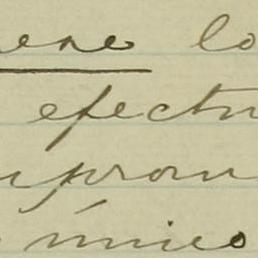 ene lo
efectu
uprom
único